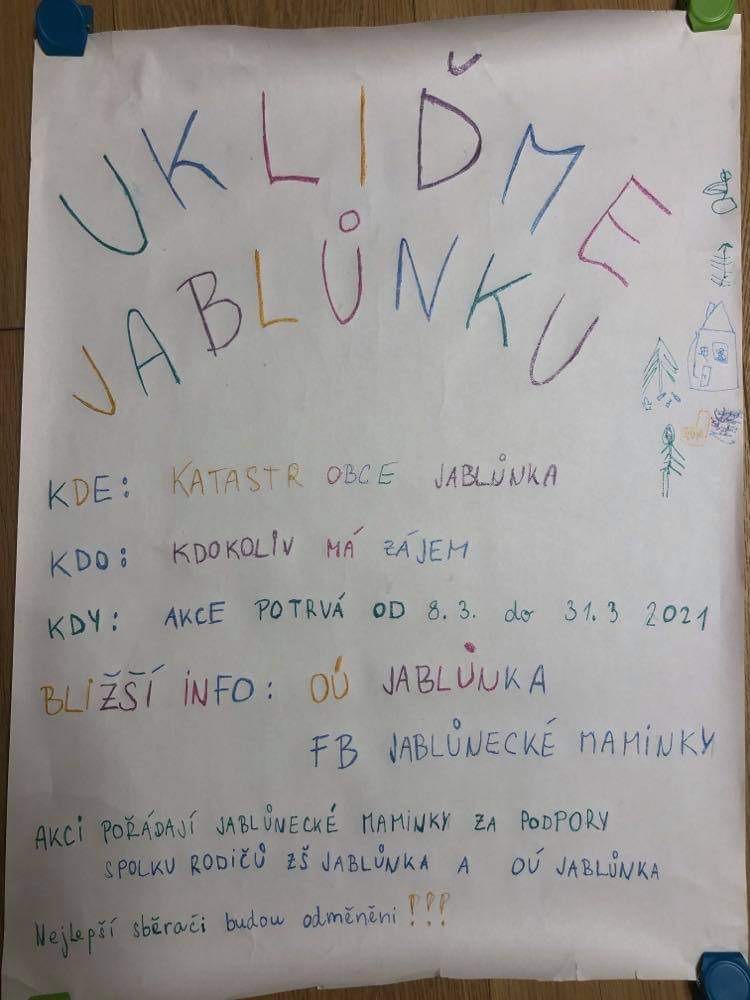 UKLIĎME
JABLŮNKU
KDE: KATASTR OBCE JABLŮNKA
KDO: KDOKOLIV MÁ ZÁJEM
KDY: AKCE POTRVÁ OD 8.3. do 31.3 2021
BLIŽŠÍ INFO: OÚ JABLŮNKA
FB JABLŮNECKÉ MAMINKY
AKCI POŘÁDAJÍ JABLŮNECKÉ MAMINKY ZA PODPORY
SPOLKU RODIČŮ ZŠ JABLŮNKA A OÚ JABLŮNKA
Nejlepší sběrači budou odměněni !!!